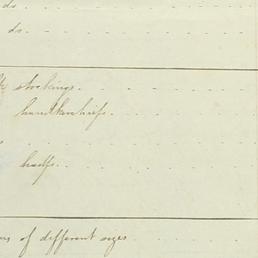 do
do.
stockings.
handkerchiefs.
of different sizes